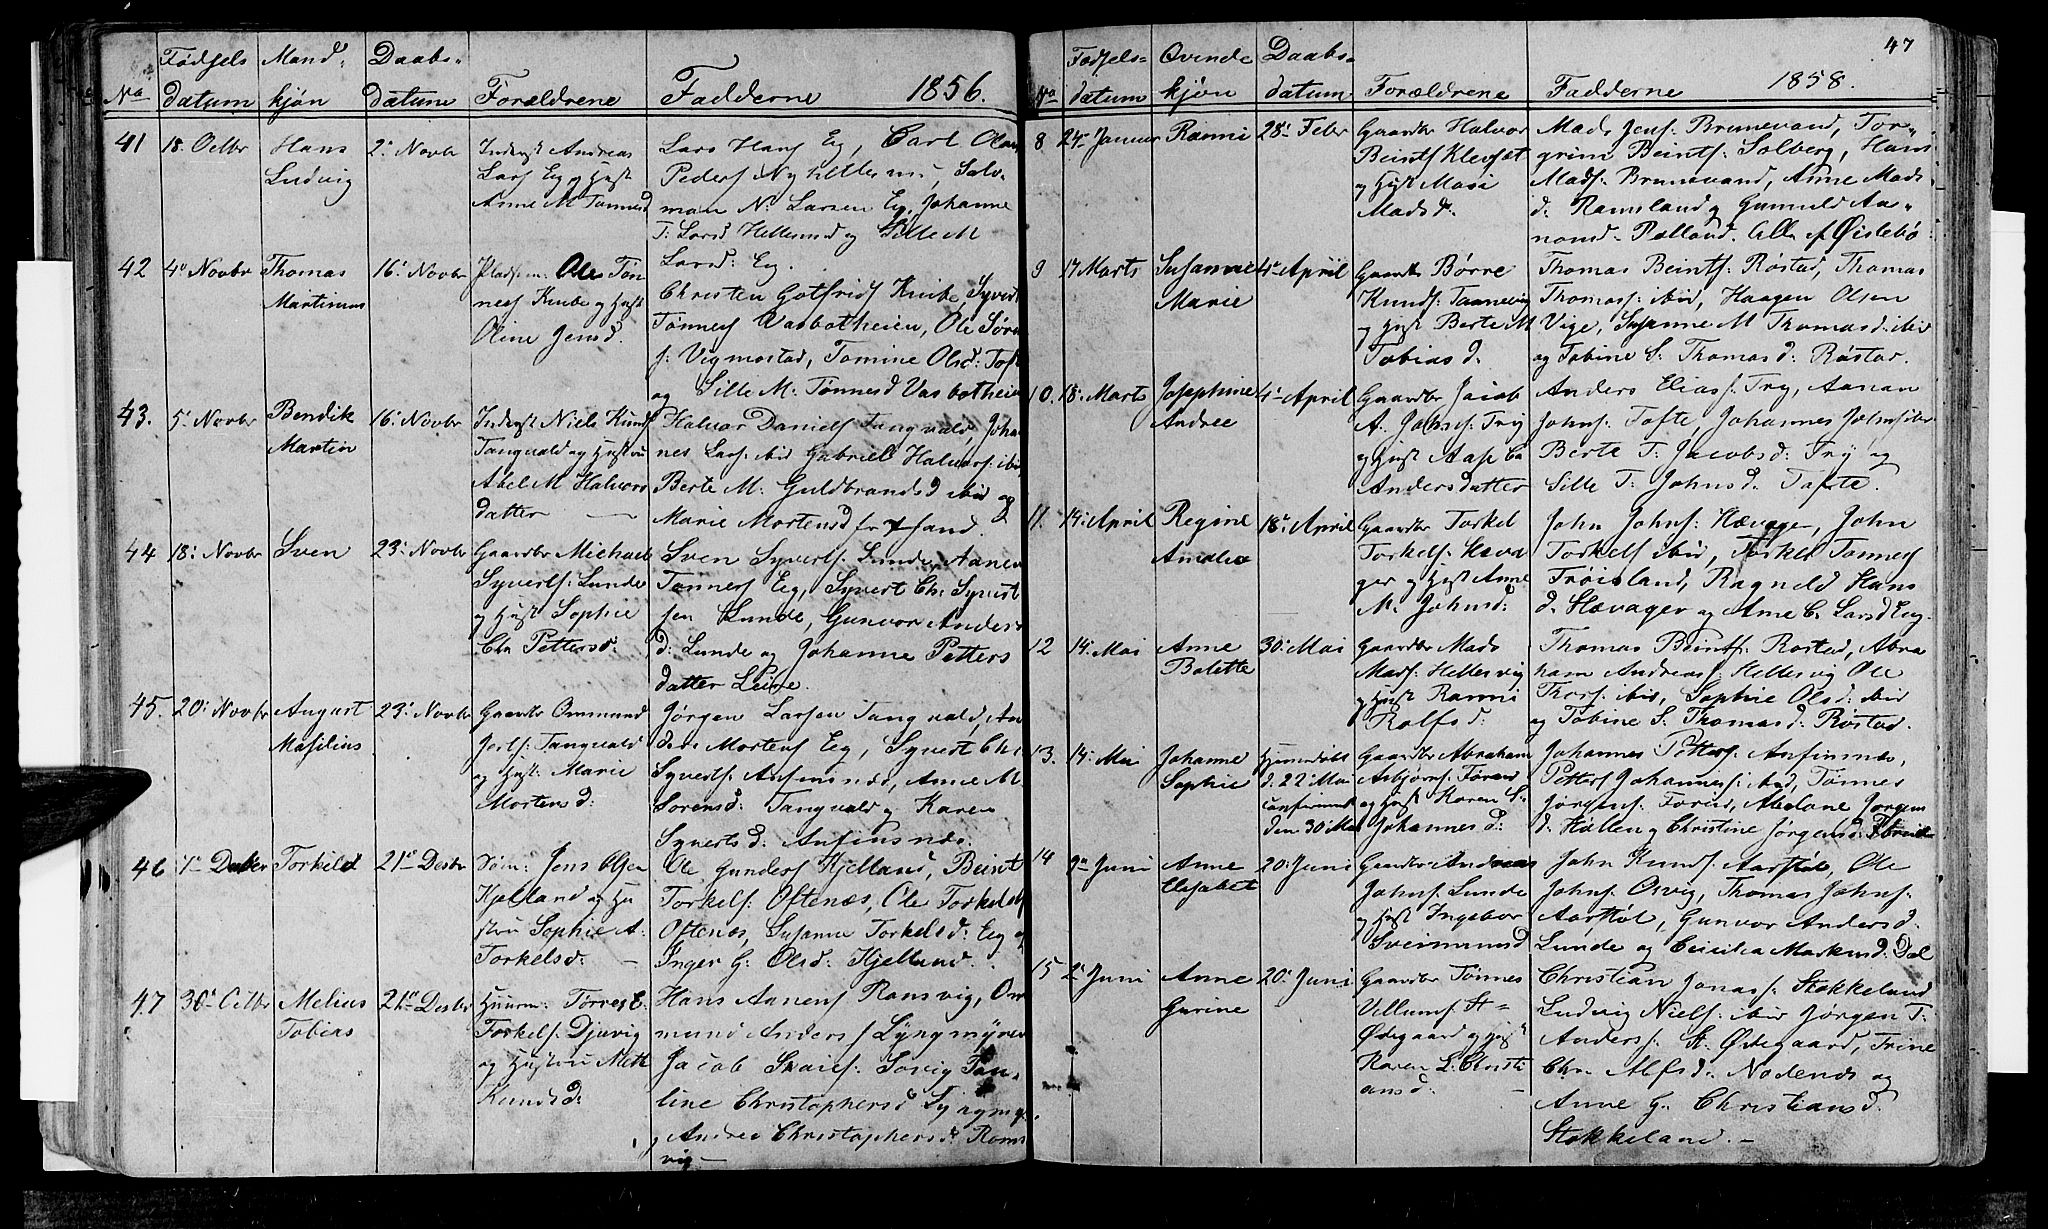 Fødsels Mand- Daabs-
No datum kjøn Datum Forældrene Fadderne 1856.
41 18. Octbr Hans Ludvig 2. Novbr Inderst Andreas
Lars Eg og Hust
Anne M Tønnesd
Lars Hans Eg, Carl Olaus
Peders Nyhellesund, Salve
man N. Larsen Eg, Johanne
T. Larsd Hellesund og Sille M
Larsd: Eg.
42 4. Novbr Thomas Martinus 16. Novbr Pladsm: Ole Tøn
nes Knibe og Hust
Oline Jensd.
Christen Gotfrids Knibe, Syvert
Tønnes Vasbotheien, Ole Sørn
s: Vigmostad, Tomine Olsd: Toft
og Sille M: Tønnesd Vasbotheien
43. 5. Novbr Bendik Martin 16. Novbr Inderst Niels Knuds
Tangvald og Hustru
Abel M Halvors
datter
Halvor Daniels Tangvald, Johan
nes Lars: ibid Gabriel Halvors: ibid
Berte M: Guldbrandsd ibid og
Marie Mortensd
44 18: Novbr Sven 23: Novbr Gaardbr Michael
Syverts: Lunde
og Hust Sophie
Chr Pettersd:
Sven Syverts: Lunde, Aanen
Tønnes Eg, Syvert Chr: Syvert
sen Lunde, Gunvor Anders
d: Lunde og Johanne Petters
datter Leire.
45. 20: Novbr August Masilius 23: Novbr Gaardbr Ommund
Jerts: Tangvald
og Hust: Marie
Mortensd:
Jørgen Larsen Tangvald, An
ders Mortens Eg, Syvert Chr:
Syverts: Anfinsnæs, Anne M.
Sørensd: Tangvald og Karen
Syvertsd: Anfinsnæs.
46 1. Decbr Torkild 21. Desbr Søm: Jens Olsen
Kjelland og Hu
stru Sophie A.
Torkelsd:
Ole Gunders Hjelland, Beint
Torkels: Oftenæs, Ole Torkels
Oftenæs, Susanne Torkelsd: Eg og
Inger G: Olsd: Kjelland.
47 30. Octbr Melius Tobias 21. Desbr Huusm: Tørres E.
Torkels: Djuvig
og Hustru Mette
Knudsd:
Hans Aanens Ramsvig, Om
mund Anders Lyngmyren
Jacob Skares: Søvig Tan-
line Christophersd Lyngmyr
og Andrea Christophersd Rams
vig
47
Fødsels- Qvinde Daabs-
No datum kjøn datum Forældrene Fadderne 1858.
8 24. Januar Rønni 28. Febr Gaardbr Halvor
Beints Klepsæt
og Hust Mari
Madsd.
Mads Jens: Brunevand, Tor-
grim Beints: Solberg, Hans
Mads: Brunevand, Anne Mads
d: Ramsland og Gunnild Aa-
nonsd: Røllond. Alle af Øislebø
9 17 Marts Susanne Marie 4. April Gaardbr Børre
Knuds: Tannevig
og Hust Berte M
Tobiasd.
Thomas Beints: Røstad, Thomas
Thomas: ibid, Haagen Olsen
Vige, Susanne M Thomasd: ibid
og Tobine S: Thomasd: Røstad.
10. 18. Marts Josephine Andrée 4. April Gaardbr Jacob
A. Johns: Try
og Hust Aase Ca
Andersdatter
Anders Elias: Try, Aanan
Johns: Tofte, Johannes Johns: ibid
Berte T: Jacobsd: Try og
Sille T: Johnsd. Tofte.
11. 14. April Regine Amalia 18. April Gaardbr Torkel
Torkels: Hæva
ger og Hust Anne
M. Johnsd:
John Johns: Hævager, John
Torkels ibid, Torkel Tønnes
Trøisland, Ragnild Hans
d. Hævager og Anne C. Larsd Eeg.
12 14. Mai Anne Bolette 30. Mai Gaardbr Mads
Mads: Hellesvig
og Hust Rønni
Rolfsd:
Thomas Beints: Røstad, Abra
ham Andreas: Hellesvig Ole
Thors: ibid, Sophie Olsd: ibid
og Tobine S: Thomasd: Røstad.
13. 14. Mai Johanne Sophie Hjemmedøbt
d. 22 Mai
confirmeret
den 30 Mai Gaardbr Abraham
Asbjørns: Førend
og Hust Karen S:
Johannesd:
Johannes Petters: Anfinsnæs,
Petter Johannes: ibid, Tønnes
Jørgens: Forud, Abelone Jørgens
d. Hallen og Christine Jørgensd.
14 9. Juni Anne Elisabet 20. Juni Gaardbr Andreas
Johns: Lunde
og Hust Ingebor
Sveinunsd
John Knuds: Aarstøl, Ole
Johns: Osvig, Thomas Johns:
Aarstøl, Gunvor Andersd.
Lunde og Cecilia Markusd. Dal
15 2. Juni Anne Gurine 20. Juni Gaardbr Tønnes
Villums: St-
Ødegaard og Hust
Karen L. Christi
ansd:
Christian Jonas: Stokkeland
Ludvig Niels: ibid Jørgen T.
Anders: St. Ødegaard, Trine
Chr. Alfsd: Nodenes og
Anne G. Christiansd.
Stokkeland.